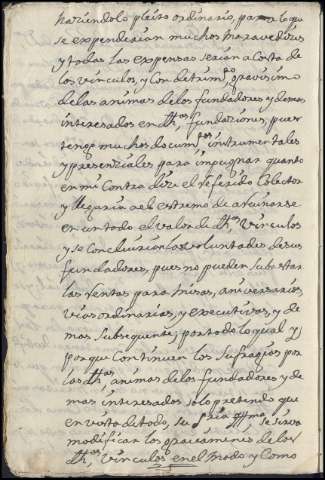 haziéndolo pleito ordinario, para lo qual
se expenderian muchos maravedises
y todas las expensas serian a Costa de
los vinculos, y Con detrimto gravisimo
de las animas de los fundadores y demas
interesados en dhas fundaziones, pues
tengo muchos documtos instrumentales
y presenziales para impugnar quanto
en mi Contra dize el referido Colector
y llegarian a el extremo de arruinarse
en un todo el valor de dhos Vinculos
y se Concluirian las voluntades de sus
fundadores, pues no pueden subrestar
las Rentas para misas, aniversarios,
vias ordinarias, y executivas, y de
mas subsequente, por todo lo qual y
porque Continuen los sufragios por
las dhas animas de los fundadores y de
mas interesados solo pretendo que
en vista de todo, su ssria Illma se sirva
modificar los gravamenes de los
dhos vinculos en el modo y Como